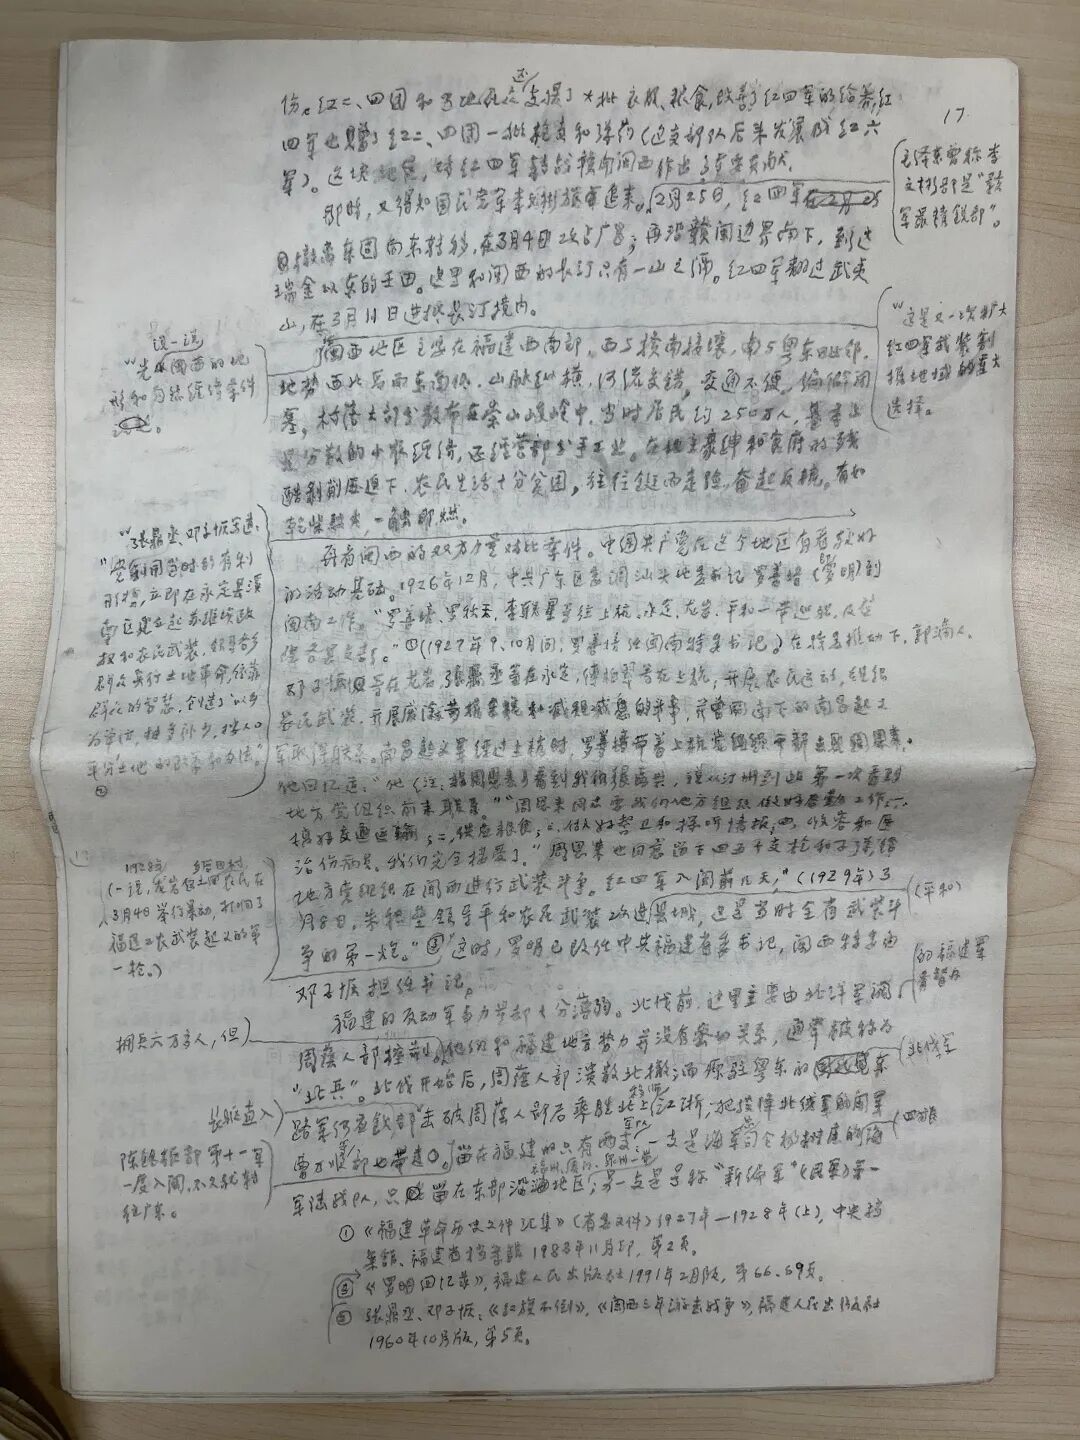 17
还
伤。红二、四团和当地民众支援了大批衣服、粮食,改善了红四军的给养,红
四军也赠了红二、四团一批枪支和弹药(这支部队后来发展成红六
军)。这块地区,对红四军转战赣南闽西作出了重要贡献。
毛泽东曾称李
文彬部是“赣
军最精锐部”。
那时,又得知国民党军李文彬旅军追来。2月25日,红四军
撤离东固向东转移,在3月4日攻占广昌;再沿赣闽边界南下,到达
瑞金以东的壬田。这里和闽西的长汀只有一山之隔。红四军翻过武夷
山,在3月11日进抵长汀境内。
“这是又一次扩大
红四军武装割
据地域的重大
选择。
说一说
“先闽西的地
形和经济条件
闽西地区主要在福建西南部,西与赣南接壤,南与粤东毗邻,
地势西北高而东南低,山脉纵横,河流交错,交通不便,偏僻闭
塞,村落大部分散布在崇山峻岭中,当时居民约250万人,基本上
是分散的小农经济,还经营部分手工业。在地主豪绅和官府的残
酷剥削压迫下,农民生活十分贫困,往往铤而走险,奋起反抗。有如
乾柴烈火,一触即燃。
“张鼎丞、邓子恢写道:
“党利用当时的有利
形势,立即在永定县溪
南区建立起苏维埃政
权和农民武装,领导各乡
群众实行土地革命,依靠
群众的智慧,创造了以乡
为单位,抽多补少,按人口
平分土地的政策和办法。”
再看闽西的双方力量对比条件。中国共产党在这个地区有着较好
的活动基础。1926年12月,中共广东区委调汕头地委书记罗善培(罗明)到
闽南工作。“罗善培、罗秋天、李联星等往上杭、永定、龙岩、平和一带巡视,及在
各县支部。”①(1927年9、10月间,罗善培任闽南特委书记。)在特委推动下,郭滴人、
邓子恢等在龙岩,张鼎丞等在永定,傅柏翠等在上杭,开展农民运动,组织
农民武装,开展减租减息的斗争,并曾同南下的南昌起义
军取得联系。南昌起义军经过上杭时,罗善培带着上杭党组织干部去见周恩来。
他回忆道:“他(注:指周恩来)看到我们很高兴,说从汀州到此第一次看到
地方党组织前来联系。”“周恩来同志要我们地方组织做好各种工作:一、
搞好交通运输;二、供应粮食;三、做好警卫和探听情报;四、收容和医
治伤病员。我们完全接受了。”周恩来也同意留下四五十支枪和子弹,给
地方党组织在闽西进行武装斗争。红四军入闽前几天,“(1929年)3
月8日,朱积垒领导平和农民武装攻进县城,这是当时全省武装斗
(平和)
争的第一炮。”②这时,罗明已改任中共福建省委书记,闽西特委由
邓子恢担任书记。
1928年
(一说,龙岩后田农民在
3月4日举行暴动,打响了
福建工农武装起义的第
一枪。)
福建的反动军事力量却十分薄弱。北伐前,这里主要由北洋军阀
的福建军
周荫人部控制,他们和福建地方势力并没有密切关系,通常被称为
拥兵六万多人,但
“北兵”。北伐开始后,周荫人部溃败北撤;而原驻粤东的东
北伐军
路军何应钦部击破周荫人部后乘胜北上江浙,
长驱直入
曹万顺部也带走。留在福建的只有两支军队:一支是海军司令杨树庄的海
福州、厦门、泉州一带
军陆战队,只留在东部沿海地区;另一支是号称“新编军”(民军)第一
陈铭枢部第十一军
一度入闽,不久就转
往广东。
①《福建革命历史文件汇集》(省委文件)1927年—1928年(上),中央档
案馆、福建省档案馆1983年11月印,第2页。
②《罗明回忆录》,福建人民出版社1991年2月版,第66、69页。
张鼎丞、邓子恢:《红旗不倒》,《闽西三年游击战争》,福建人民出版社
1960年10月版,第5页。